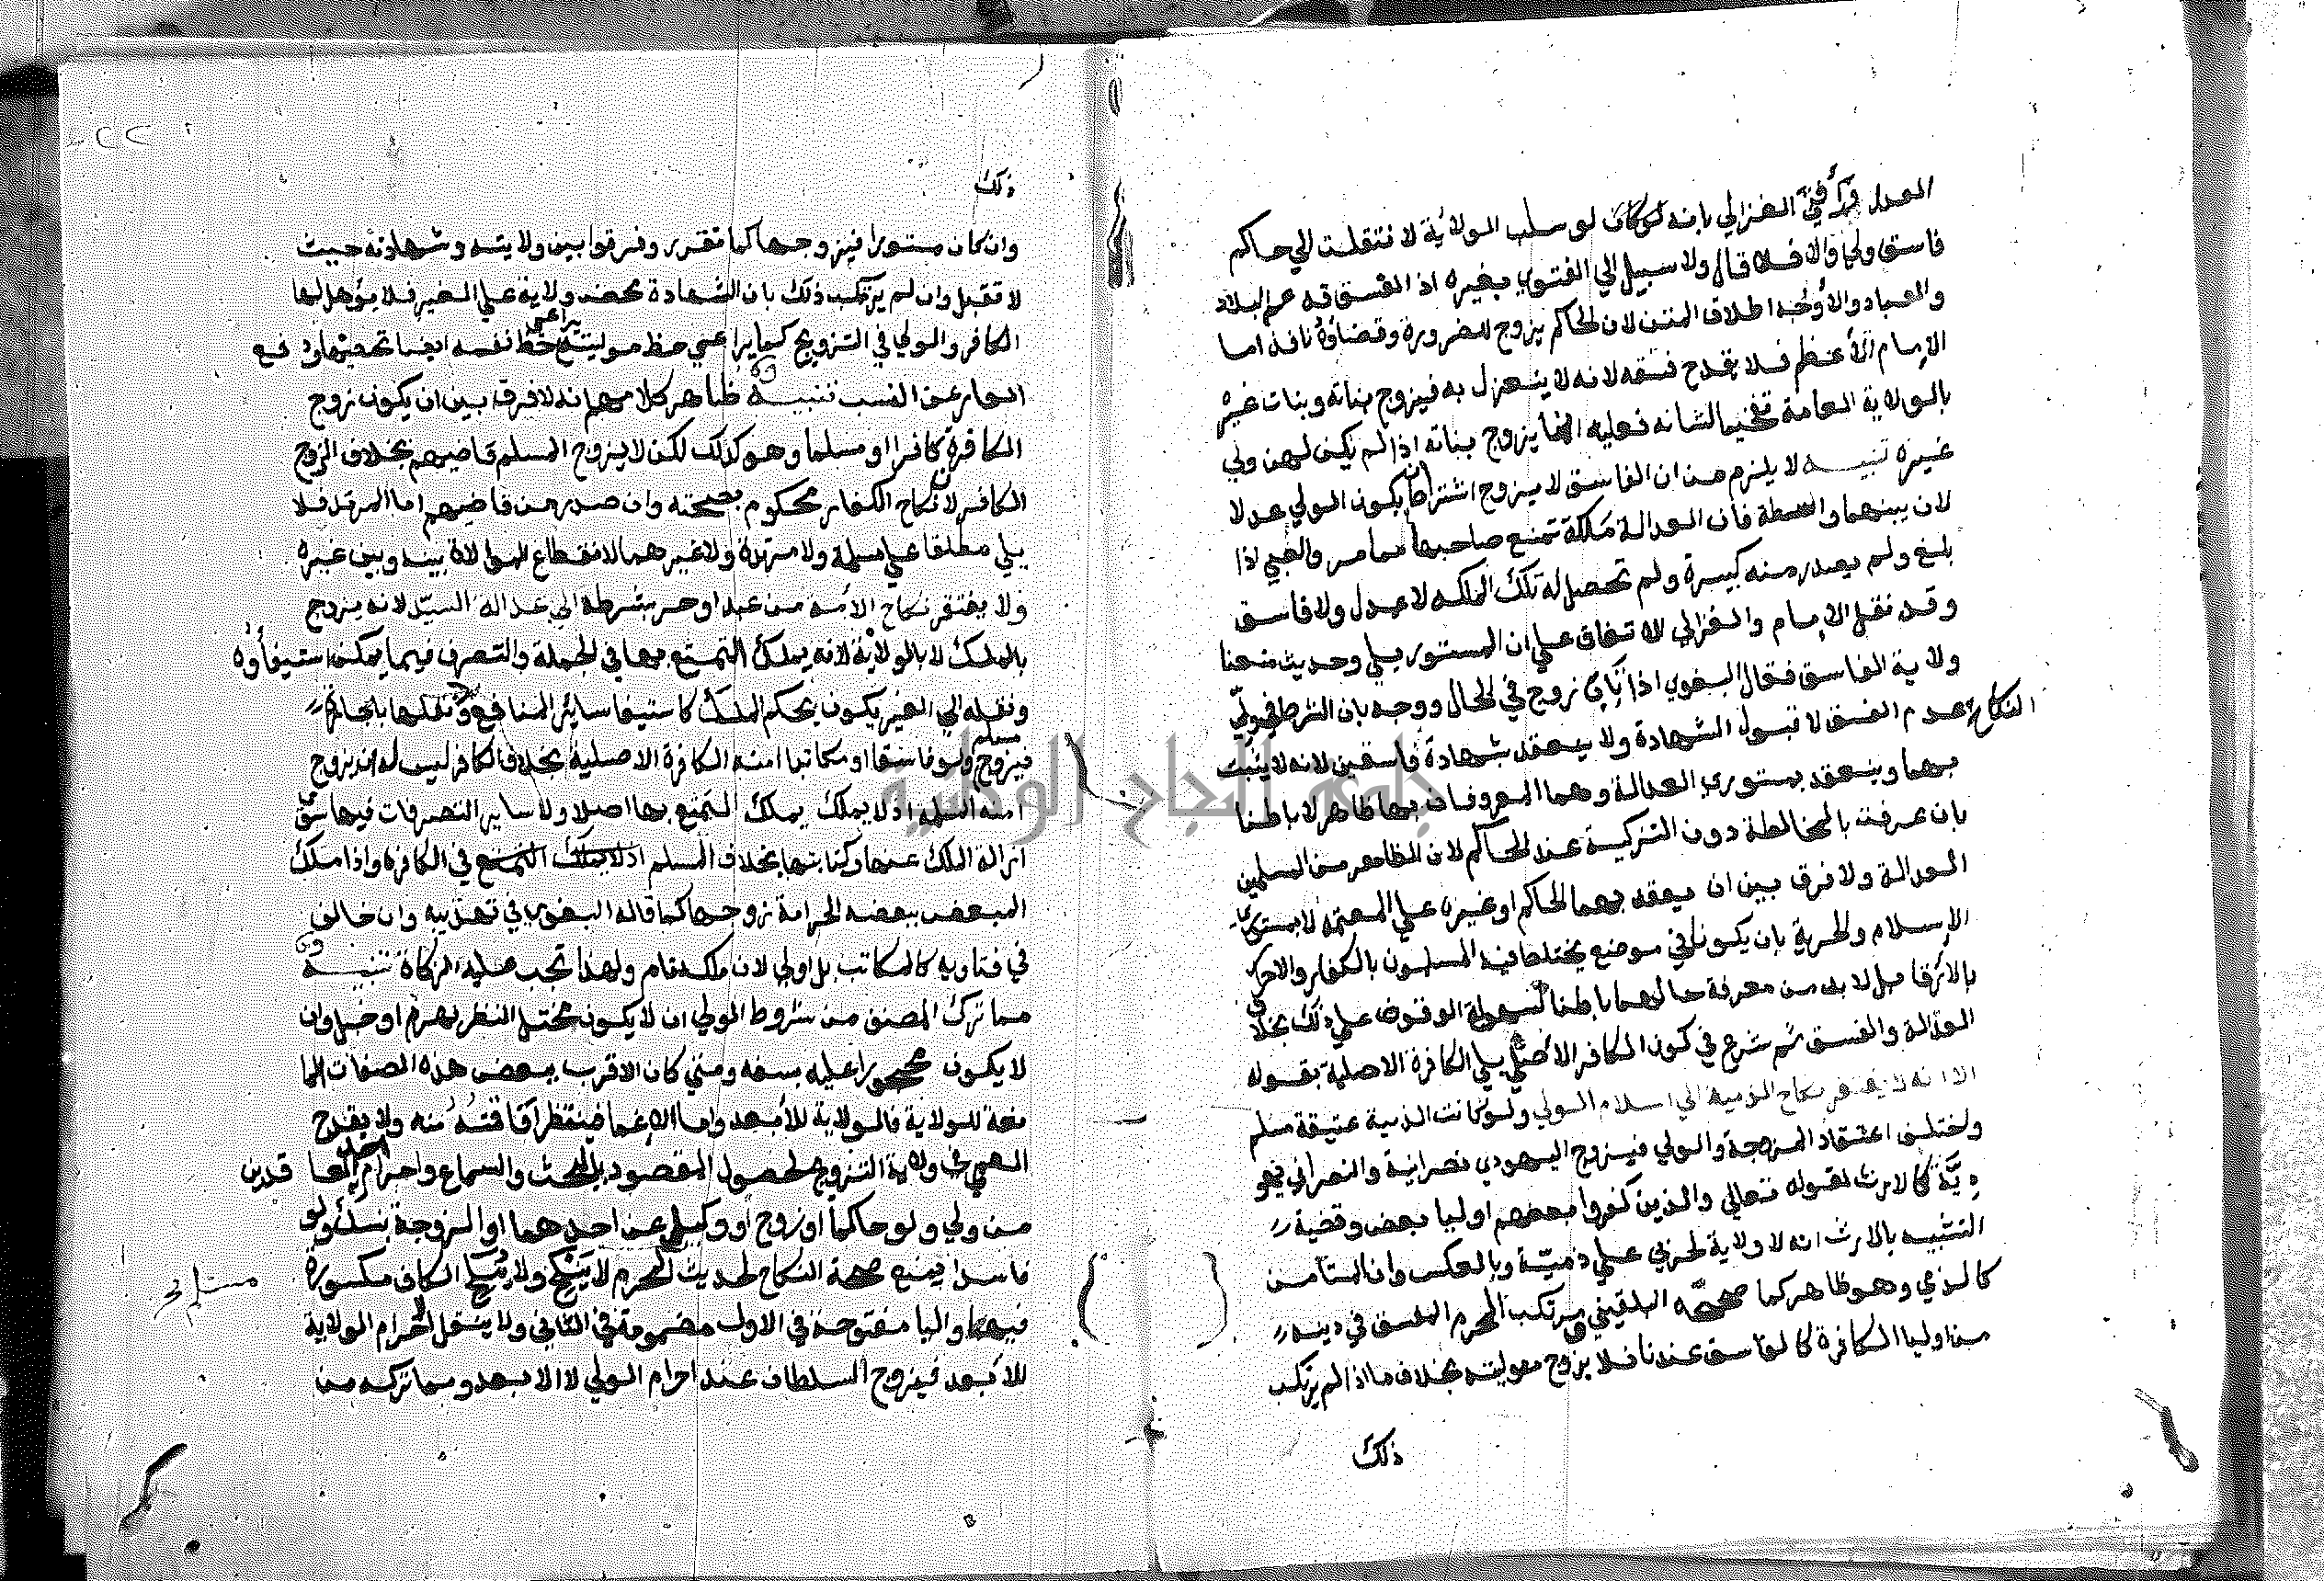 العدل وأفتى الغزالي بانه لو كان لو سلب الولاية لانتقلت الي حاكم
فاسق ولي والا فلا قال ولا سبيل الي الفتوي بغيره اذ الفسق قد عم البلاد
والعباد والأوجه اطلاق المتن لان الحاكم يزوج للضرورة وقضاؤه نافذ اما
الإمام الأعظم فلا يقدح فسقه لانه لا ينعزل به فيزوج بناته وبنات غيره
بالولاية العامة تفخيما لشانه فعليه انما يزوج بناته اذا لم يكن لهن ولي
غيره تنبيه لا يلزم من ان الفاسق لا يزوج اشتراط ان يكون الولي عدلا
لان بينهما واسطة فان العدالة ملكة تمنع صاحبها مما مر والصبي اذا
بلغ ولم يصدر منه كبيرة ولم تحصل له تلك الملكه لا عدل ولا فاسق
وقد نقل الإمام والغزالي الاتفاق علي ان المستور يلي وحديث منعنا
ولاية الفاسق فقال البغوي اذا تاب زوج في الحال ووجه بان الشرط في ولي
النكاح عدم الفسق لا قبول الشهادة ولا ينعقد بشهادة فاسقين لانه لا يثبت
بهما وينعقد بمستوري العدالة وهما المعروفان بها ظاهرا لا باطنا
بان عرفت بالمخالطة دون التزكية عند الحاكم لان الظاهر من المسلمين
العدالة ولا فرق بين ان يعقد بهما الحاكم او غيره علي المعتمد لا بمستوري
الإسلام والحرية بان يكونا في موضع يختلط فيه المسلمون بالكفار والاحرار
بالأرقا بل لابد من معرفة حالهما باطنا لسهولة الوقوف علي ذلك بخلاف
العدالة والفسق ثم شرع في كون الكافر الأصلي يلي الكافرة الاصلية بقوله
الا انه لا يفتقر نكاح الذمية الي اسلام الولي ولو كانت الذمية عتيقة مسلم
واختلف اعتقاد الزوجة والولي فيزوج اليهودي نصرانية والنصراني يهو
دية كالارث لقوله تعالي والذين كفروا بعضهم اوليا بعض وقضية
التشبيه بالارث انه لا ولاية لحربي علي ذمية وبالعكس وان المستأمن
كالذمي وهو ظاهر كما صححه البلقيني ومرتكب المحرم المفسق في دينه
من اوليا الكافرة كالفاسق عندنا فلا يزوج موليته بخلاف ما اذا لم يرتكب
ذلك
ذلك
وان كان مستورا فيزوجها كما تقرر وفرقوا بين ولايته وشهادته حيث
لا تقبل وان لم يرتكب ذلك بان الشهادة محض ولاية علي الغير فلا يؤهل لها
الكافر والولي في التزويج كما يراعي حظ موليته يراعي حظ نفسه ايضا تحصينها ودفع
العار عن النسب تنبيه ظاهر كلامهم انه لا فرق بين ان يكون زوج
الكافرة كافرا او مسلما وهو كذلك لكن لا يزوج المسلم قاضيهم بخلاف الزوج
الكافر لان نكاح الكفار محكوم بصحته وان صدر من قاضيهم اما المرتد فلا
يلي مطلقا علي مسلمة ولا مرتدة ولا غيرهما لانقطاع الموالاة بينه وبين غيره
ولا يفتقر نكاح الأمة من عبد او حر بشرطه الي عدالة السيد لانه يزوج
بالملك لا بالولاية لانه يملك التمتع بها في الجملة والتصرف فيما يمكن استيفاؤه
ونقله الي الغير يكون بحكم الملك كاستيفا ساير المنافع ونقلها بالاجارة
فيزوج مسلم ولو فاسقا او مكاتبا امته الكافرة الاصلية بخلاف الكافر ليس له ان يزوج
امته المسلمة اذ لا يملك يملك التمتع بها اصلا ولا ساير التصرفات فيها سوى
ازالة الملك عنها وكتابتها بخلاف المسلم اذ لا يملك التمتع في الكافرة واذا ملك
المبعض ببعضه الحر امة زوجها كما قاله البغوي في تهذيبه وان خالف
في فتاويه كالمكاتب بل اولي لان ملكه تام ولهذا تجب عليه الزكاة تنبيه
مما ترك المصنف من شروط الولي ان لا يكون مختل النظر بهرم او خبل وان
لا يكون محجورا عليه بسفه ومتي كان الاقرب ببعض هذه الصفات الما
نعة للولاية فالولاية للأبعد واما الإغما فينتظر افاقته منه ولا يقدح
العمي في ولاية التزويج لحصول المقصود بالبحث والسماع واحرام احد العاقدين
من ولي ولو حاكما او زوج او وكيل عن احدهما او الزوجة بنسك ولو
فاسدا يمنع صحة النكاح لحديث المحرم لا ينكح ولا ينكح الكاف مكسورة
مسلم
فيهما واليا مفتوحة في الاول مضمومة في الثاني ولا ينقل الاحرام الولاية
للأبعد فيزوج السلطان عند احرام الولي لا الابعد ومما تركه من
جامعة النجاح الوطنية